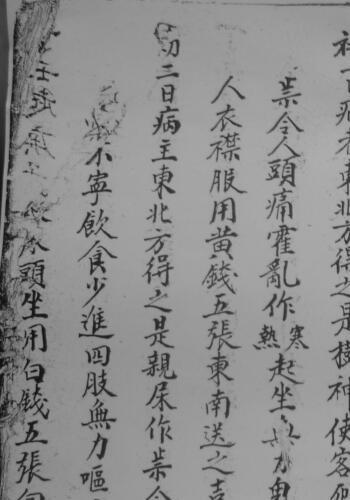 初一日病者東北方得之是樹神使客死
祟令人頭痛霍亂作寒熱起坐無力
人衣襟服用黄錢五張東南送之吉
初三日病主東北方得之是親屎作祟令
不寧飲食少進四肢無力嘔
頭坐用白錢五張向